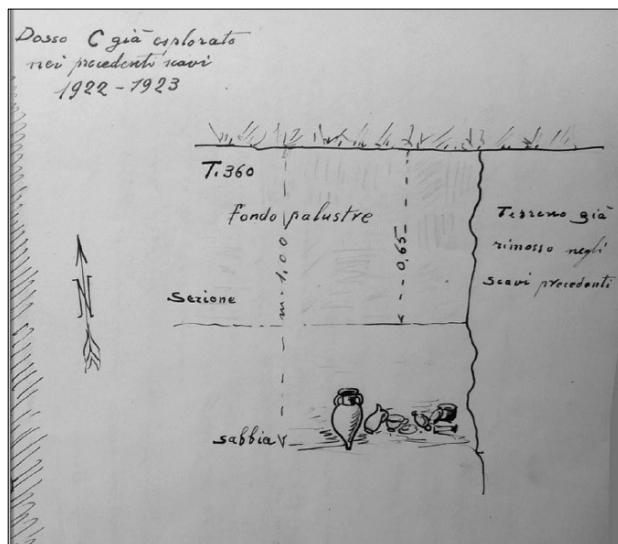 Dosso C già esplorato
nei precedenti scavi
1922-1923
T. 360
fondo palustre
m. 1,00
0,65
Terreno già
rimosso negli
scavi precedenti
N
Sezione
sabbia